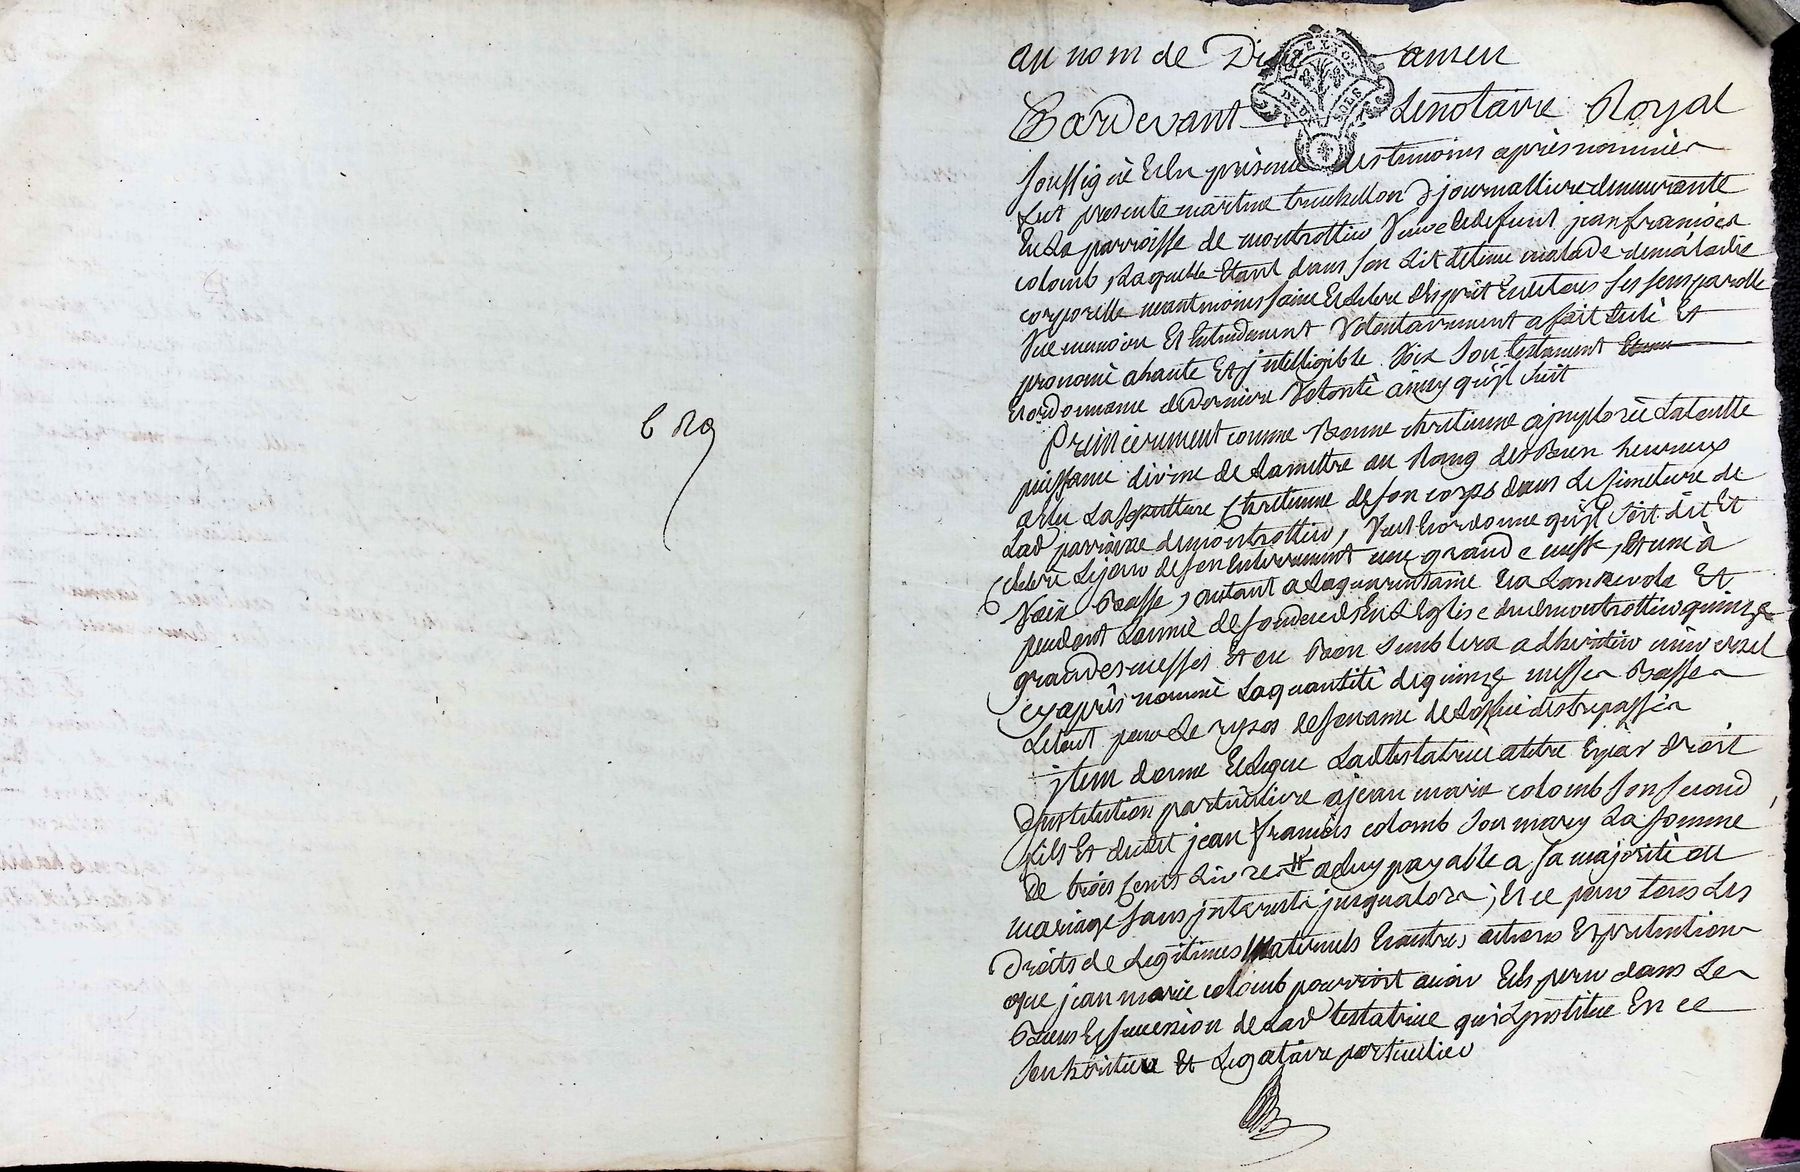 au nom de Dieu amen
Pardevant Lenotaire Royal
soussigné Et En présence des temoins après nommés
fut presente martine truchillon journalliere demeurante
En La parroisse de montrottier Veuve de defunt jean francois
colomb, Laquelle Etant dans son Lit detenue malade demaladie
corporelle neantmoins saine Et Libre d'Esprit En tous ses sens parolle
Vue memoire Et Entendement Volontairement a fait dicté Et
prononcé ahaute Et jntelligible Voix son testament
Et ordonnance dederniere Volonté ainsy qu'jl suit
Premierement comme Bonne chretienne a jmploré La toutte
puissance divine de La mettre au Rang des Bien heureux
a Elu La sepulture chretienne de son corps dans Le simetiere de
Lad parroisse demontrottier, Veut Et ordonne qu'jl soit dit Et
celebré Lejour de son Enterrement une grande messe, Et une à
Voix Basse, autant a Laquarantaine Et a Lannevole Et
pendant Lannée de son deceds En L'Eglise dud montrottier quinze
grandes messes Et ou Bon semblera a dheritier universel
cy après nommé La quantité de quinze messes Basses
Le tout pour Le repos de son ame de Lossice des trepassés
jtem donne Et Legue Lad testatrice atitre Et par droit
d'jnstitution particuliere a jean marie colomb son second
fils Et dudit jean francois colomb son mary La somme
De trois Cents Livres a Luy payable a sa majorité ou
mariage sans jnterests jusqualors; Et ce pour tous Les
Droits de Legitimes Maternels Et autres actions Et pretentions
que jean marie colomb pourroit avoir Et Esperer dans Les
Biens Et succession de Lad testatrice qui L'jnstitue En ce
son heritier Et Legataire particulier